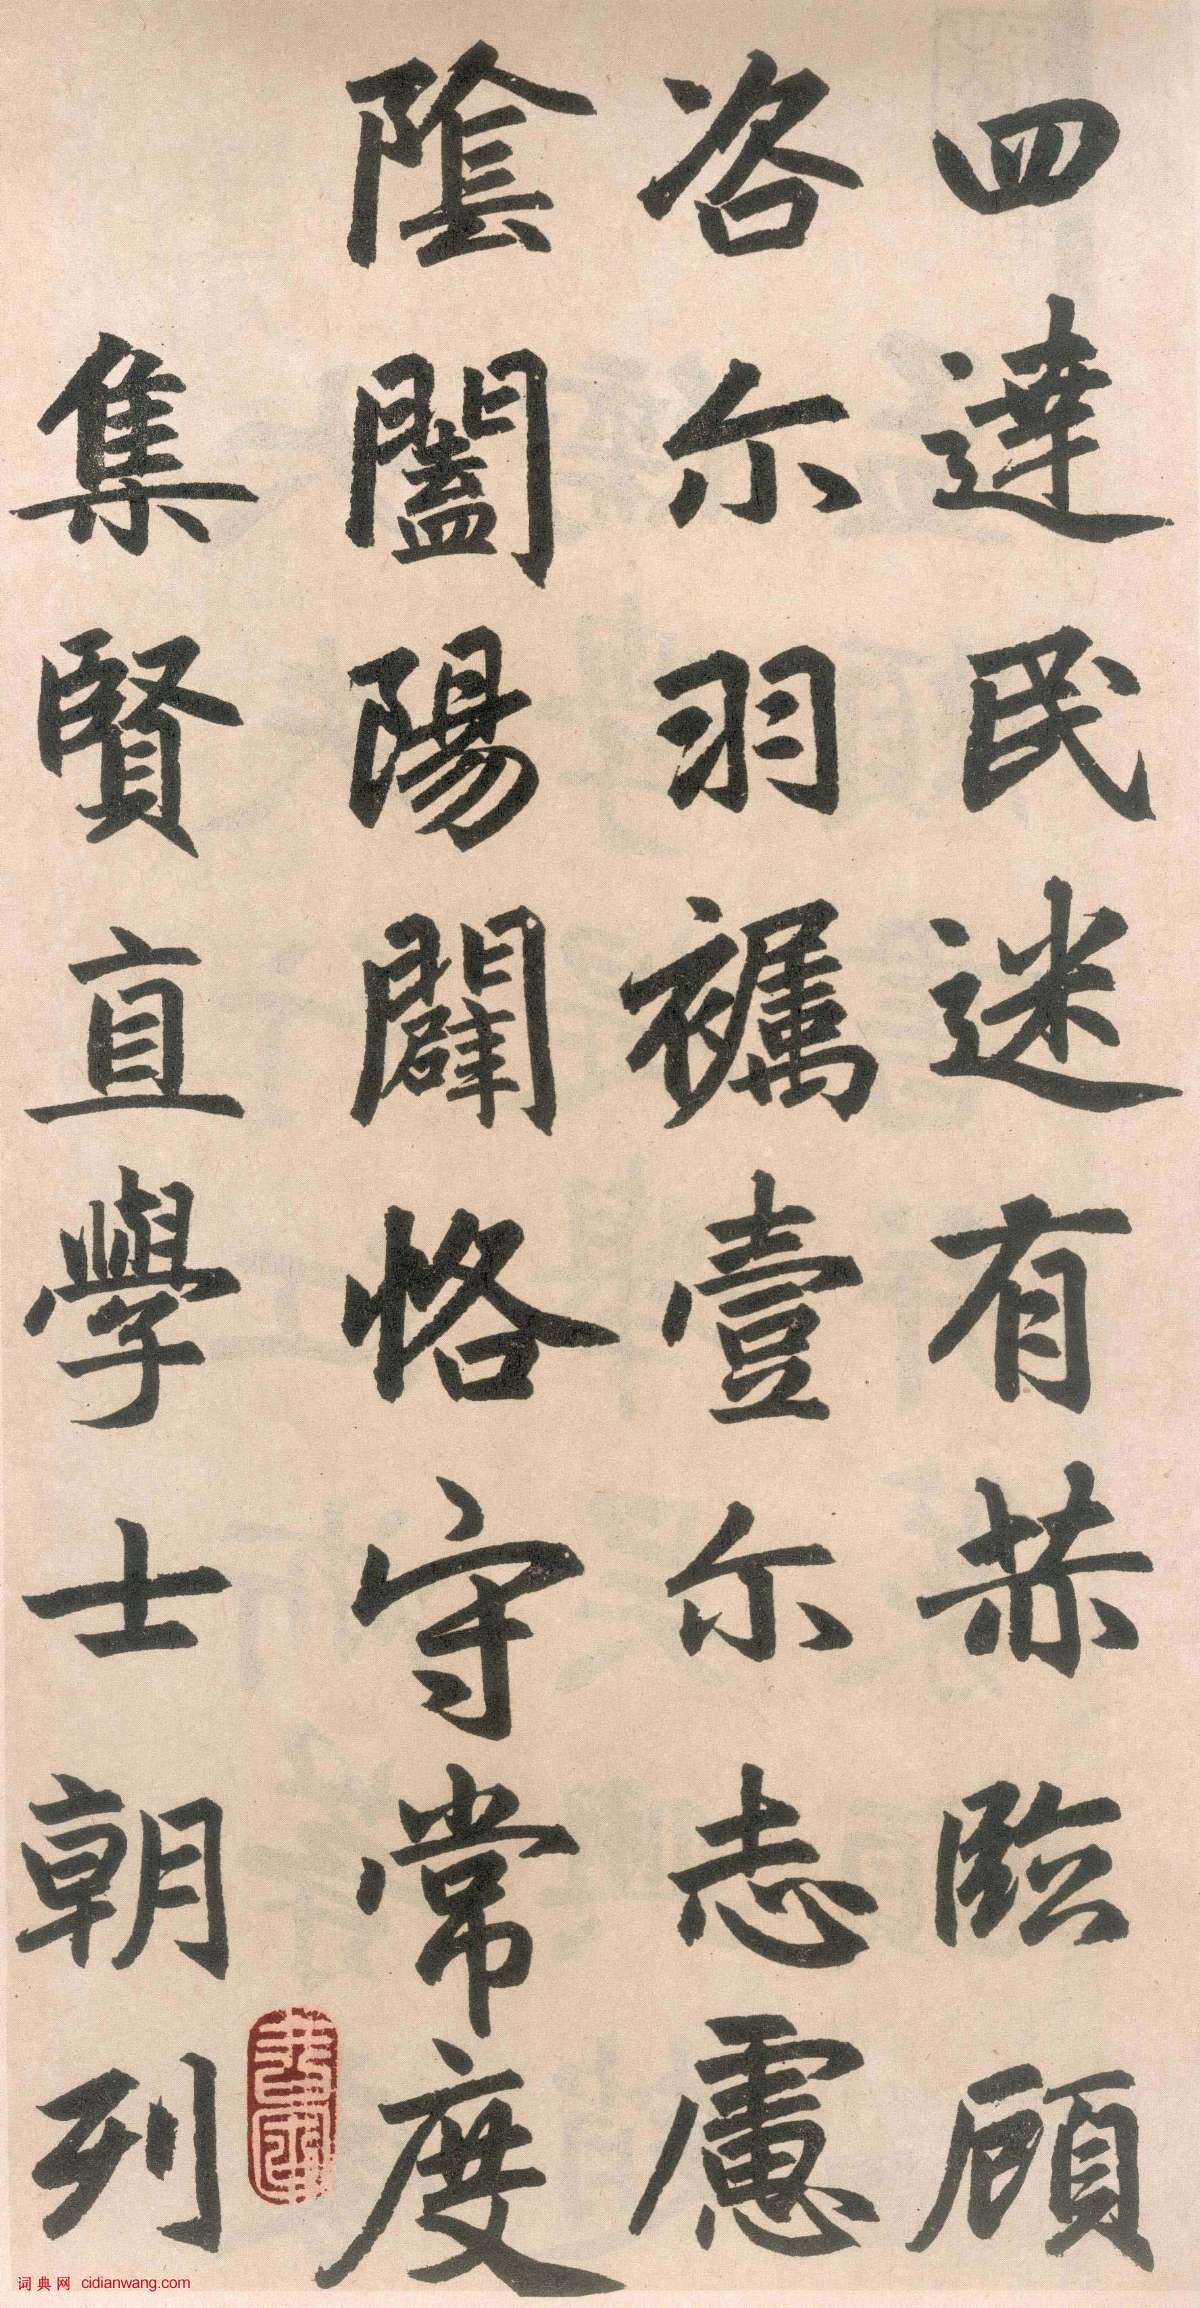 四達民迷有赫臨顧
咨尔羽襹壹尔志慮
陰闔陽闢恪守常度
集賢直學士朝列
词典网 cidianwang.com